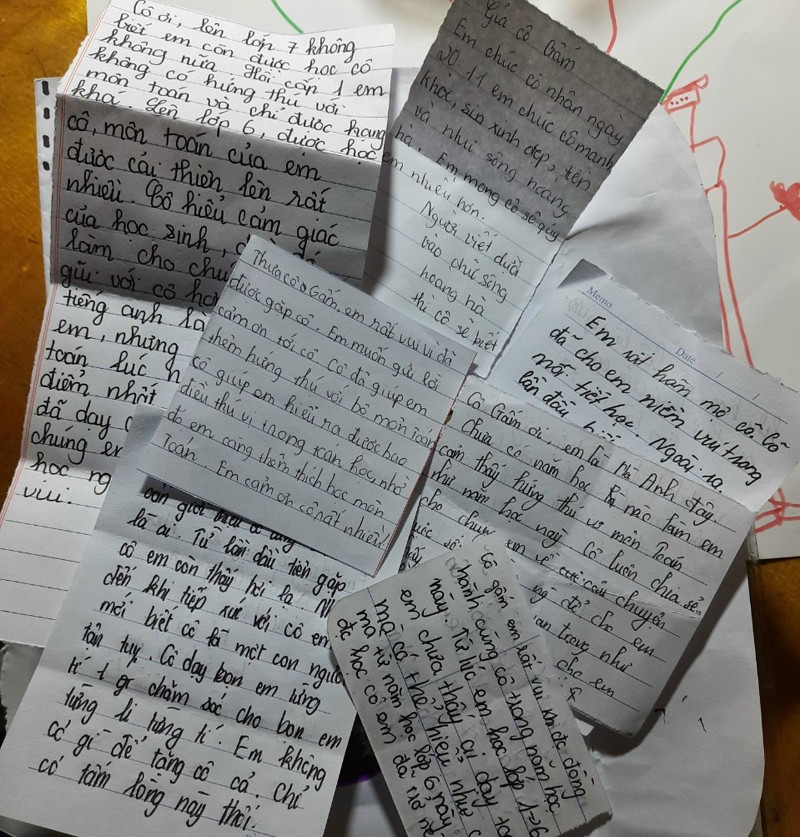 Cô ơi, lên lớp 7 không
biết em còn được học cô
không nữa. Hồi cấp 1 em
không có hứng thú với
môn toán và chỉ được hạng
khá. Lên lớp 6, được học
cô, môn toán của em
được cải thiện lên rất
nhiều. Cô hiểu cảm giác
của học sinh,
làm cho chú
gũi với cô hơ
tiếng anh là
em, nhưng
toán lúc n
điểm nhất
đã dạy
chúng em
học ng
vui.
Gửi cô Gấm
Em chúc cô nhân ngày
20.11 em chúc cô mạnh
khỏe, sin xinh đẹp,
và như sông hoàng
hà. Em mong cô sẽ quý
em nhiều hơn.
Người viết dưới
vào phít sông
hoàng hà
thì cô sẽ biết
Memo
Date / /
Em rất hâm mộ cô. Cô
đã cho em niềm vui trong
mỗi tiết học. Ngoài ra
lần đầu
Thưa cô Gấm, em rất vui vì đã
được gặp cô. Em muốn gửi lời
cảm ơn tới cô. Cô đã giúp em
thêm hứng thú với bộ môn toán
cô giúp em hiểu ra được bao
điều thú vị trong toán học, nhờ
đó em càng thêm thích học môn
Toán. Em cảm ơn cô rất nhiều!
Cô Gấm ơi, em là Hà Anh đây
Chưa có năm học nào làm em
cảm thấy hứng thú vs môn Toán
như năm học này. Cô luôn chia sẻ
cho chún em về câu chuyện
để cho em
an trọng như
cho em
là ai. Từ lần đầu tiên gặp
cô em còn thấy hơi lạ. Nh
đến khi tiếp xúc với cô em
mới biết cô là một con ngư
tận tụy. Cô dạy bọn em từng
tí 1 gi chăm sóc cho bọn em
từng li từng tí. Em không
có gì để tặng cô cả. Chỉ
có tấm lòng này thôi.
Cô gấm em rất vui khi đc đồng
hành cùng cô trong năm học
này. Từ lúc em học lớp 1->6
em chưa thấy ai dạy to
mà có thể hiểu như c
mà từ năm học lớp 6 này
đc học cô em đã